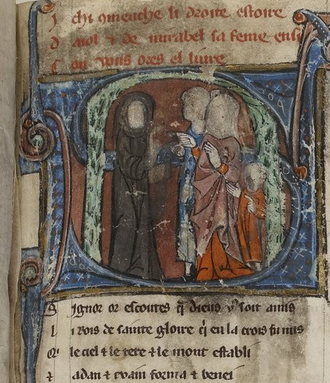 I chi gmeuche li droite estoire
D aiol & de mirabel sa feme ensi
C on vous ores el liure
S ignor or escoutes q̄ dieus vͦ soit amis
I i rois de sainte gloire q̄ en la crois fu mis
Qi le ciel & le tere & le mont establi
& adan & evain forma & benei